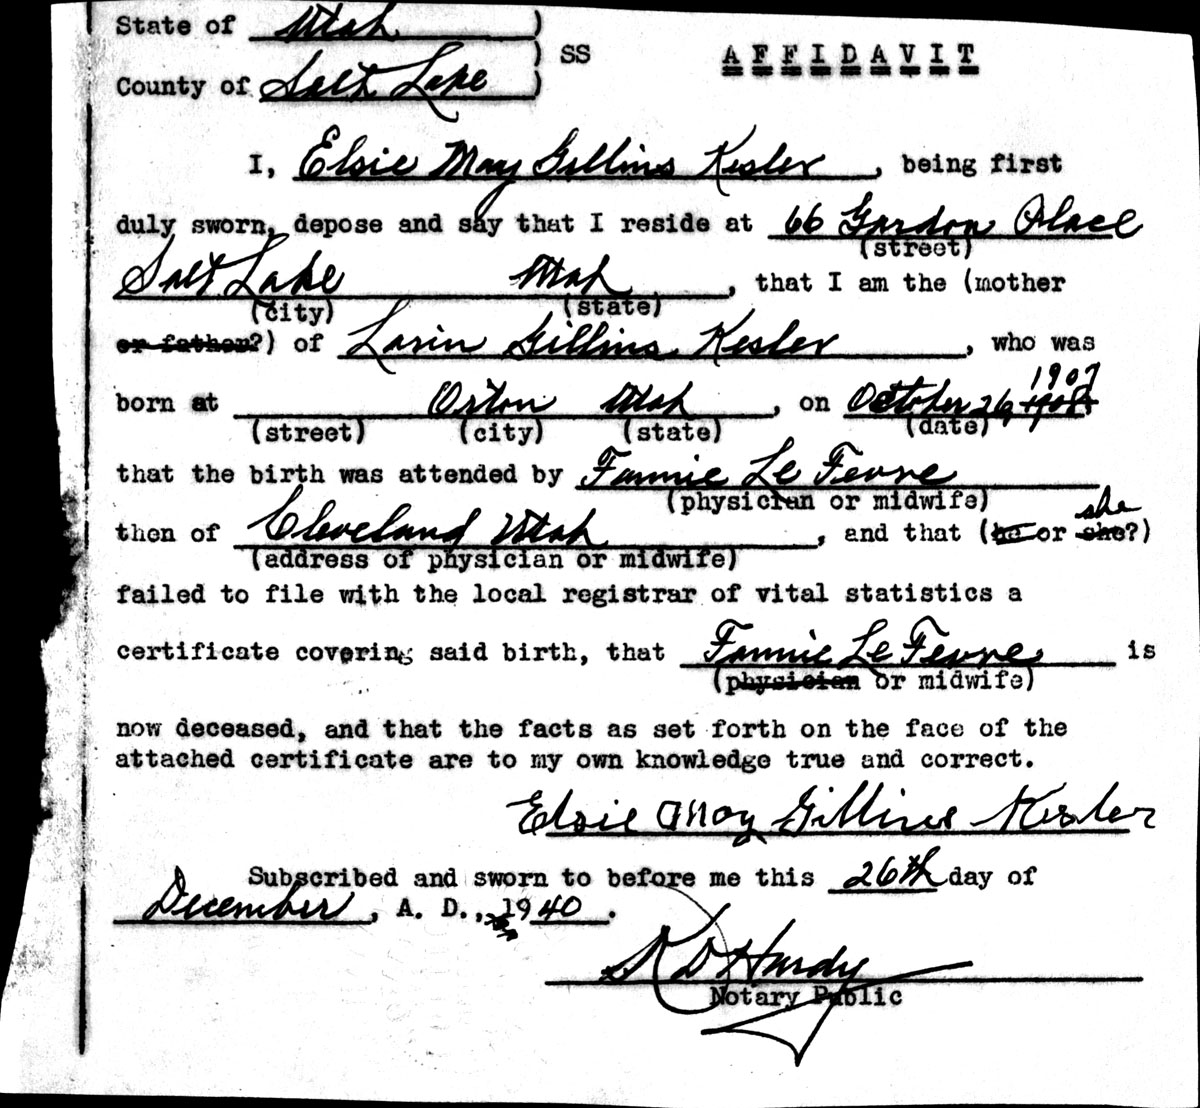 State of Utah )
) SS AFFIDAVIT
County of Salt Lake )
I, Elsie May Gillins Kesler, being first
duly sworn, depose and say that I reside at 66 Gordon Place
(street)
Salt Lake Utah, that I am the (mother
(city) (state)
or father?) of Lorin Gillins Kesler, who was
1907
born at Orton Utah, on October 26 1908
(street) (city) (state) (date)
that the birth was attended by Fannie Le Fevre
(physician or midwife)
she
then of Cleveland Utah, and that (he or she?)
(address of physician or midwife)
failed to file with the local registrar of vital statistics a
certificate covering said birth, that Fannie Le Fevre is
(physician or midwife)
now deceased, and that the facts as set forth on the face of the
attached certificate are to my own knowledge true and correct.
Elsie May Gillins Kesler
Subscribed and sworn to before me this 26th day of
December, A. D., 1940.
Hardy
Notary Public